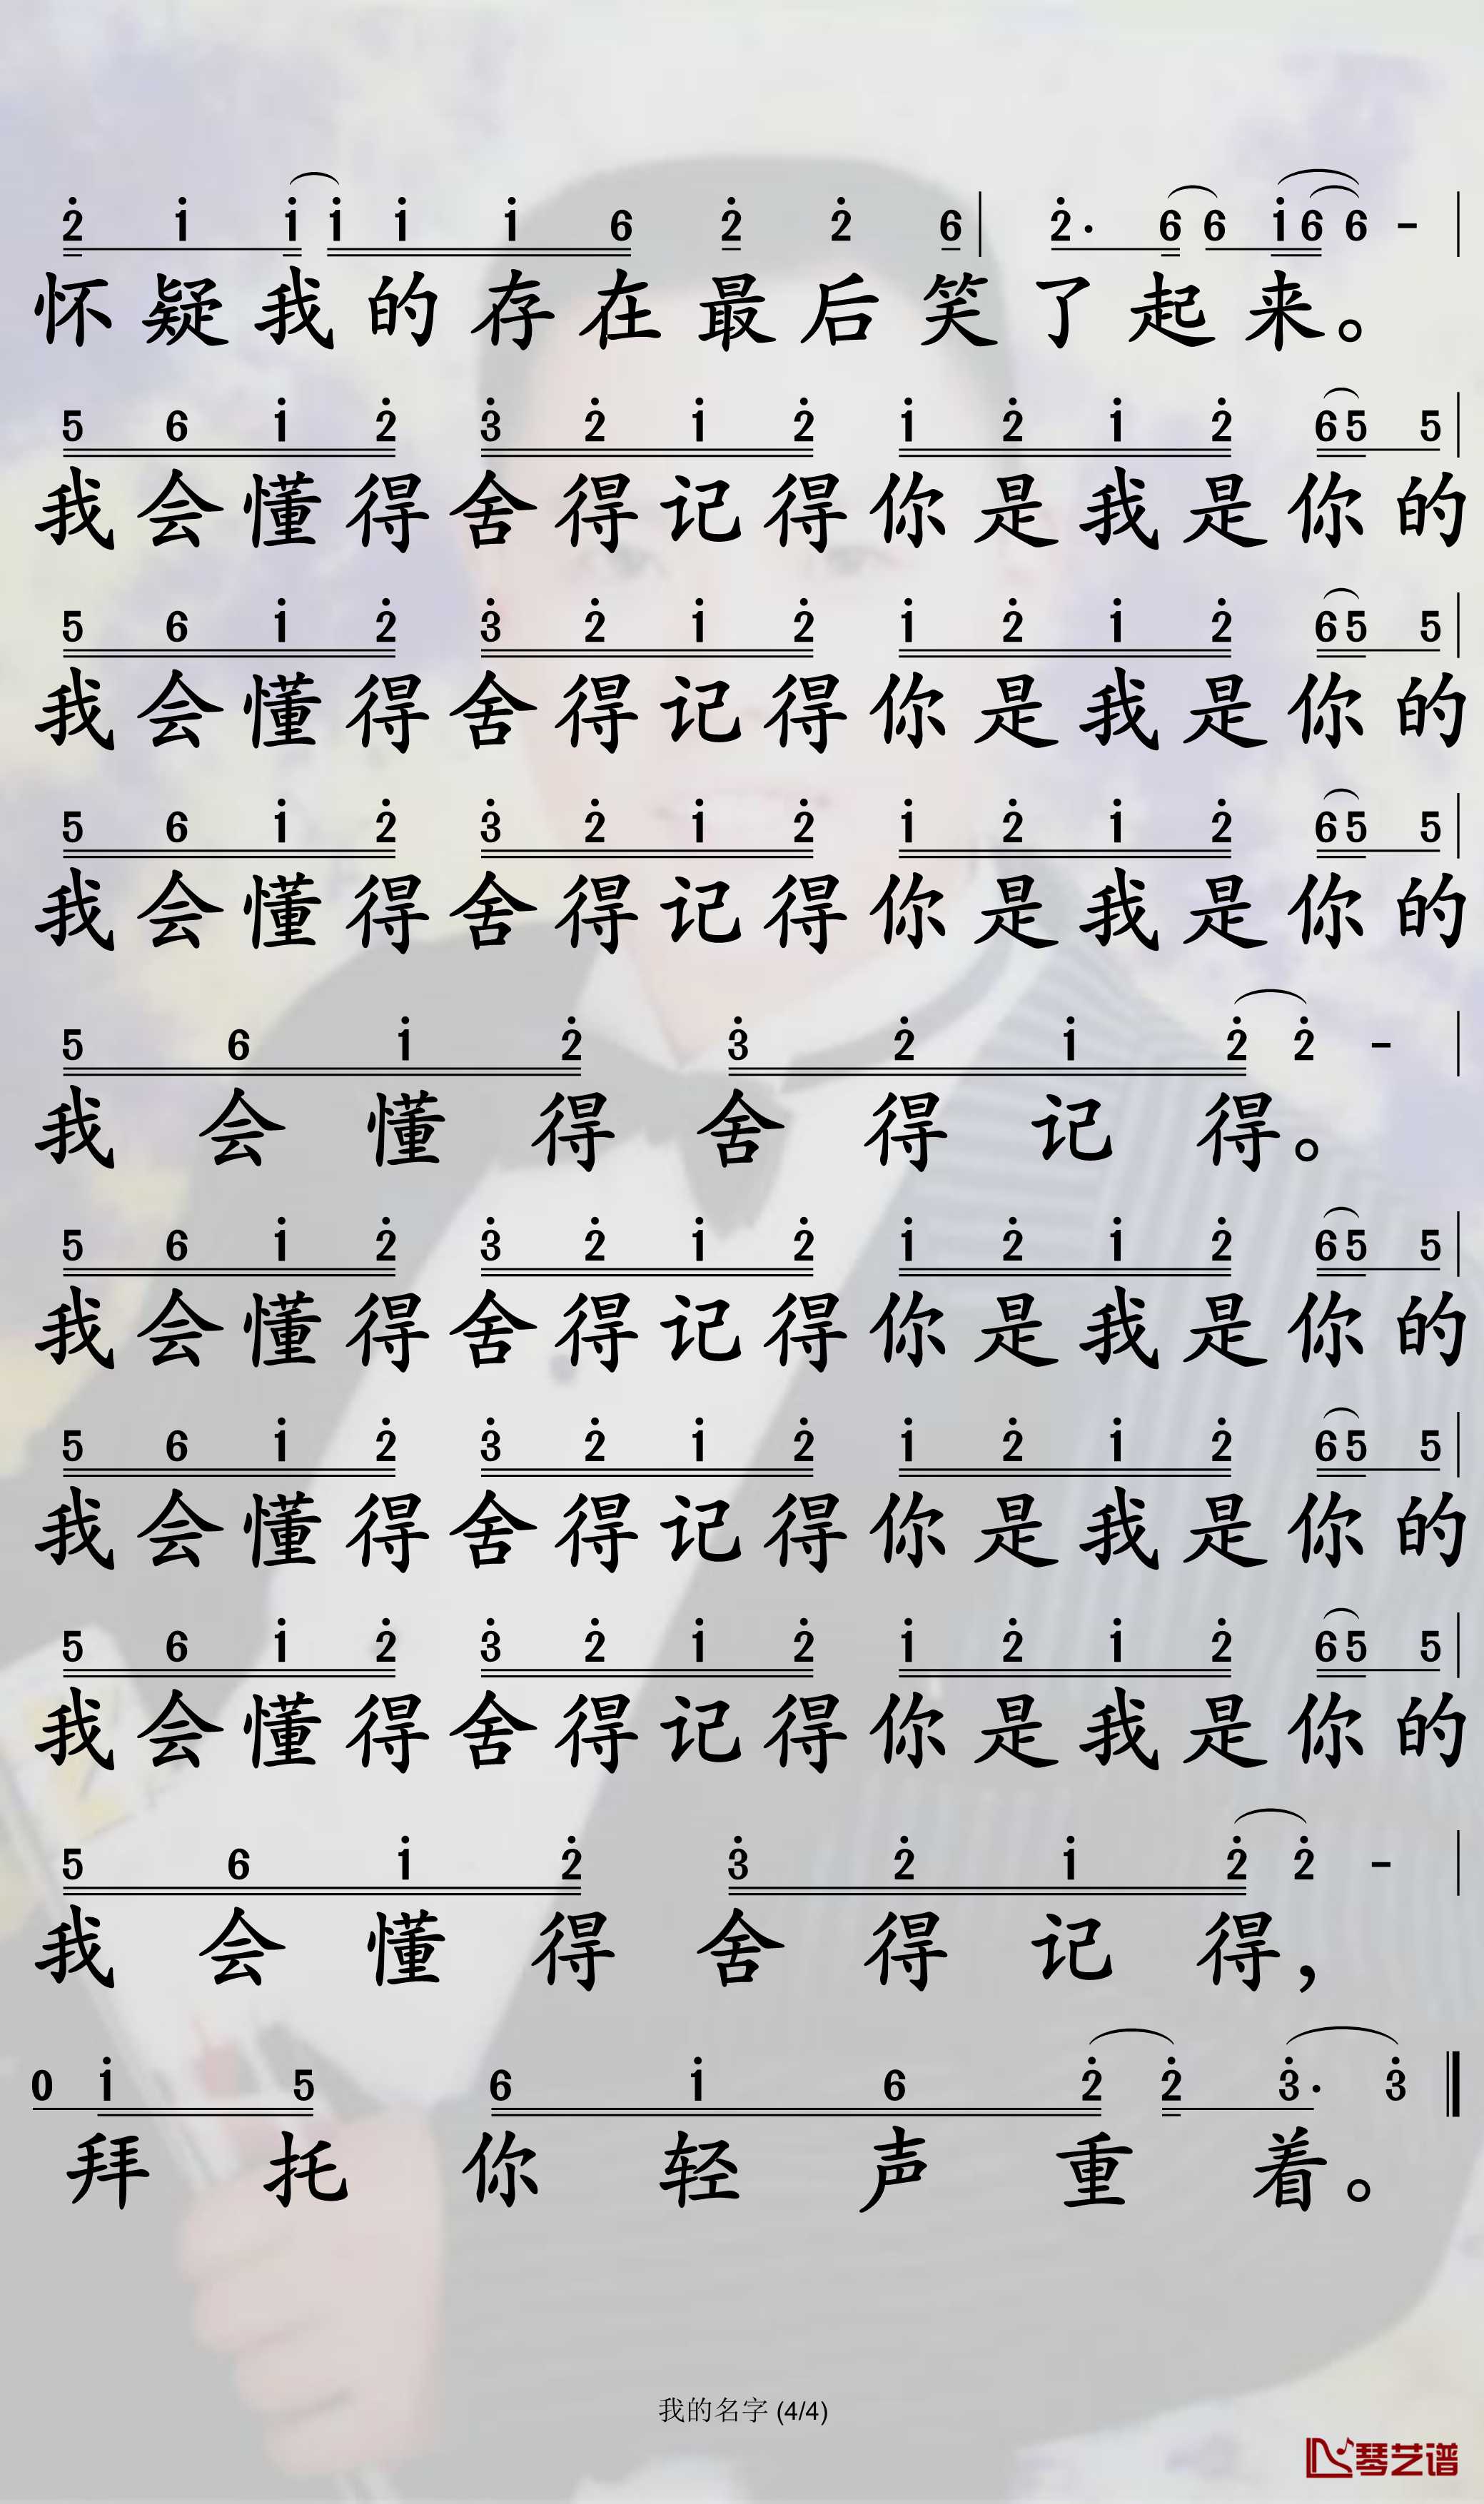 2 1 1 1 1 1 6 2 2 6 | 2· 6 6 1 6 6 - |
怀疑我的存在最后笑了起来。
5 6 1 2 3 2 1 2 1 2 1 2 6 5 5 |
我会懂得舍得记得你是我是你的
5 6 1 2 3 2 1 2 1 2 1 2 6 5 5 |
我会懂得舍得记得你是我是你的
5 6 1 2 3 2 1 2 1 2 1 2 6 5 5 |
我会懂得舍得记得你是我是你的
5 6 1 2 3 2 1 2 2 - |
我会懂得舍得记得。
5 6 1 2 3 2 1 2 1 2 1 2 6 5 5 |
我会懂得舍得记得你是我是你的
5 6 1 2 3 2 1 2 1 2 1 2 6 5 5 |
我会懂得舍得记得你是我是你的
5 6 1 2 3 2 1 2 1 2 1 2 6 5 5 |
我会懂得舍得记得你是我是你的
5 6 1 2 3 2 1 2 2 - |
我会懂得舍得记得，
0 1 5 6 1 6 2 2 3· 3
拜托你轻声重着。
我的名字 (4/4)
琴艺谱